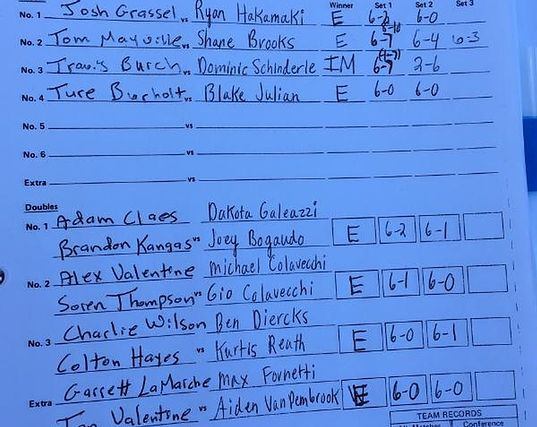 Winner Set 1 Set 2 Set 3
No. 1 Josh Grassel vs Ryan Hakamaki E 6-2 6-0
No. 2 Tom Mayville vs Shane Brooks E 6-7 6-4 6-3
No. 3 Travis Burch vs Dominic Schinderle IM 6-7 2-6
No. 4 Ture Burholt vs Blake Julian E 6-0 6-0
No. 5 vs
No. 6 vs
Extra vs
Doubles
No. 1 Adam Claes Dakota Galeazzi
Brandon Kangas vs Joey Bogaudo E 6-2 6-1
No. 2 Alex Valentine Michael Colavecchi
Soren Thompson vs Gio Colavecchi E 6-1 6-0
No. 3 Charlie Wilson Ben Diercks
Colton Hayes vs Kurtis Reath E 6-0 6-1
Extra Garrett LaMarche Max Fornetti
Valentine vs Aiden VanPembrook E 6-0 6-0
TEAM RECORDS
Conference